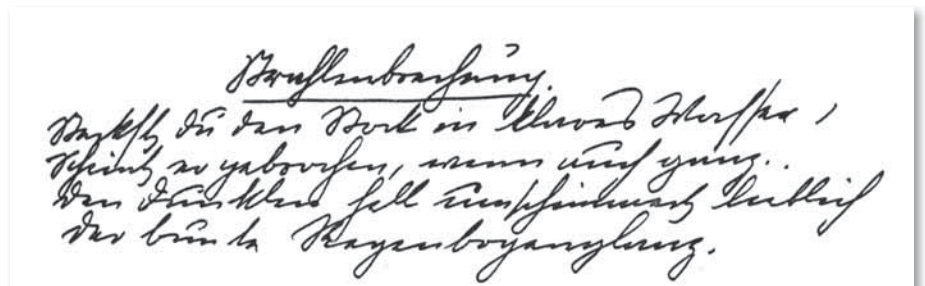 Strahlenbrechung.
Steckst du den Stock in klares Wasser,
Scheint er gebrochen, wenn auch ganz..
Den dunklen hell umschimmert lieblich
Der bunte Regenbogenglanz.